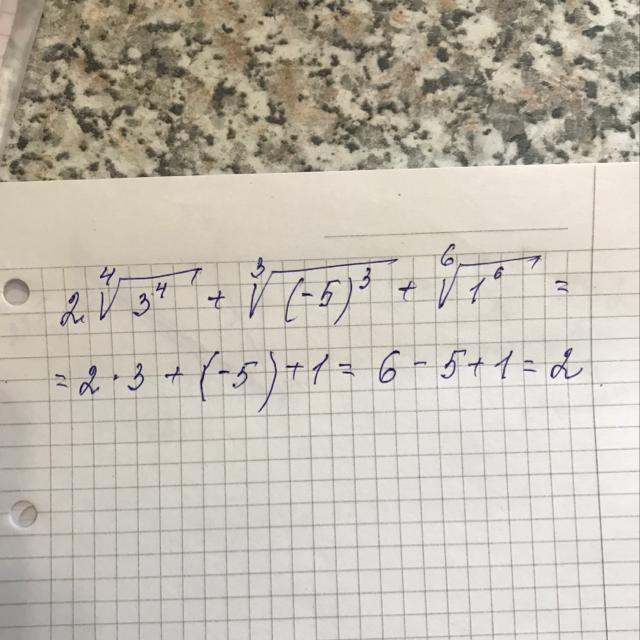 2 ⁴√3⁴ + ³√(-5)³ + ⁶√1⁶ =
= 2 · 3 + (-5) + 1 = 6 - 5 + 1 = 2